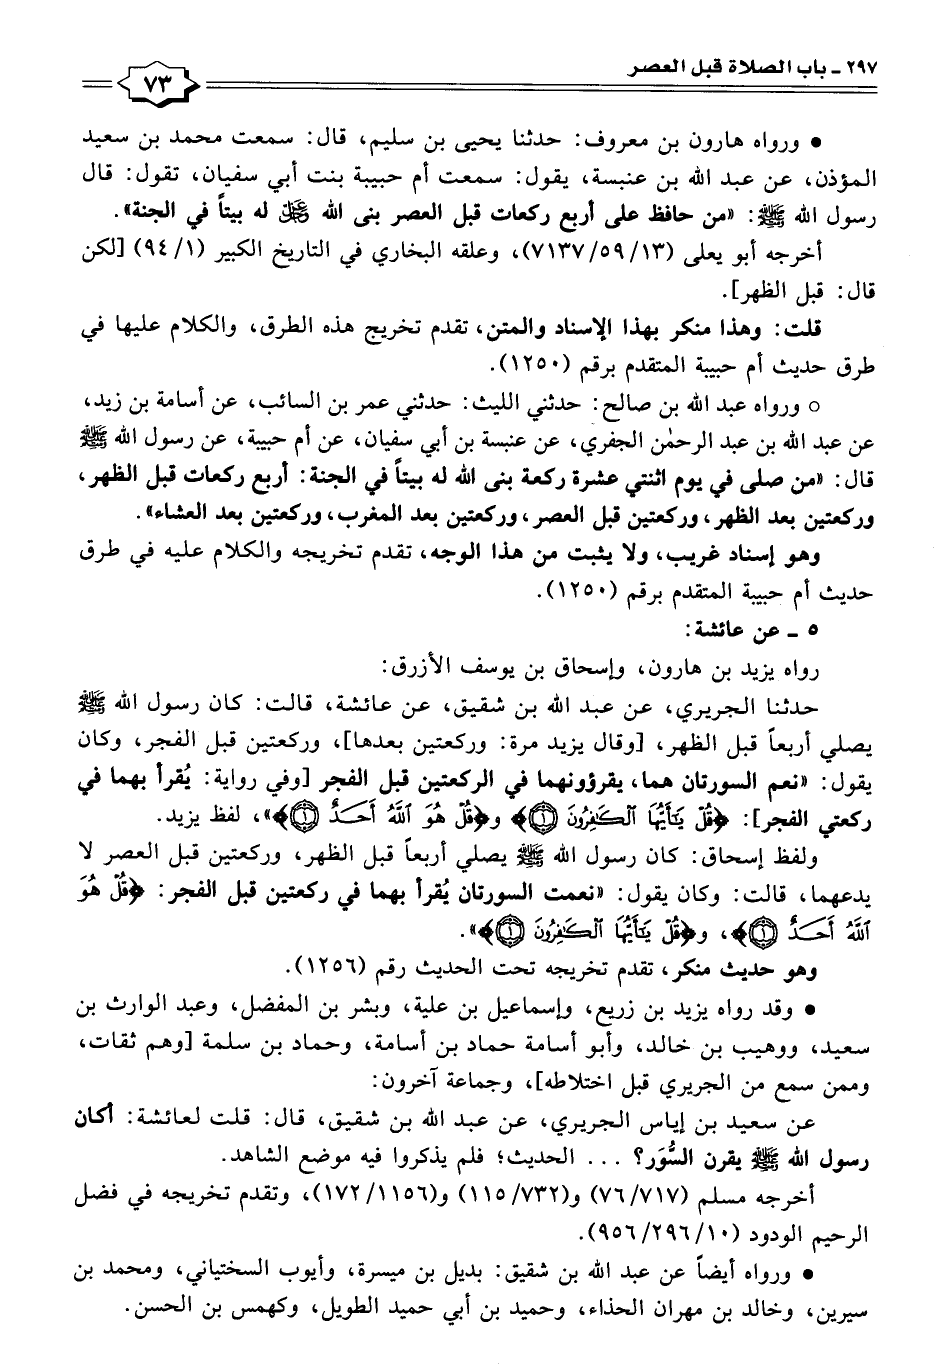 ٢٩٧ - باب الصلاة قبل العصر
٧٣
• ورواه هارون بن معروف: حدثنا يحيى بن سليم، قال: سمعت محمد بن سعيد
المؤذن، عن عبد الله بن عنبسة، يقول: سمعت أم حبيبة بنت أبي سفيان، تقول: قال
رسول الله ﷺ: «من حافظ على أربع ركعات قبل العصر بنى الله ﷿ له بيتاً في الجنة».
أخرجه أبو يعلى (٧١٣٧/٥٩/١٣)، وعلقه البخاري في التاريخ الكبير (٩٤/١) [لكن
قال: قبل الظهر].
قلت: وهذا منكر بهذا الإسناد والمتن، تقدم تخريج هذه الطرق، والكلام عليها في
طرق حديث أم حبيبة المتقدم برقم (١٢٥٠).
○ ورواه عبد الله بن صالح: حدثني الليث: حدثني عمر بن السائب، عن أسامة بن زيد،
عن عبد الله بن عبد الرحمٰن الجفري، عن عنبسة بن أبي سفيان، عن أم حبيبة، عن رسول الله ﷺ
قال: «من صلى في يوم اثنتي عشرة ركعة بنى الله له بيتاً في الجنة: أربع ركعات قبل الظهر،
وركعتين بعد الظهر، وركعتين قبل العصر، وركعتين بعد المغرب، وركعتين بعد العشاء».
وهو إسناد غريب، ولا يثبت من هذا الوجه، تقدم تخريجه والكلام عليه في طرق
حديث أم حبيبة المتقدم برقم (١٢٥٠).
٥ - عن عائشة:
رواه يزيد بن هارون، وإسحاق بن يوسف الأزرق:
حدثنا الجريري، عن عبد الله بن شقيق، عن عائشة، قالت: كان رسول الله ﷺ
يصلي أربعاً قبل الظهر، [وقال يزيد مرة: وركعتين بعدها]، وركعتين قبل الفجر، وكان
يقول: «نعم السورتان هما، يقرؤونهما في الركعتين قبل الفجر [وفي رواية: يُقرأ بهما في
ركعتي الفجر]: ﴿قُلْ يَٰٓأَيُّهَا ٱلْكَٰفِرُونَ ١﴾ و﴿قُلْ هُوَ ٱللَّهُ أَحَدٌ ١﴾»، لفظ يزيد.
ولفظ إسحاق: كان رسول الله ﷺ يصلي أربعاً قبل الظهر، وركعتين قبل العصر لا
يدعهما، قالت: وكان يقول: «نعمت السورتان يُقرأ بهما في ركعتين قبل الفجر: ﴿قُلْ هُوَ
ٱللَّهُ أَحَدٌ ١﴾، و﴿قُلْ يَٰٓأَيُّهَا ٱلْكَٰفِرُونَ ١﴾».
وهو حديث منكر، تقدم تخريجه تحت الحديث رقم (١٢٥٦).
• وقد رواه يزيد بن زريع، وإسماعيل بن علية، وبشر بن المفضل، وعبد الوارث بن
سعيد، ووهيب بن خالد، وأبو أسامة حماد بن أسامة، وحماد بن سلمة [وهم ثقات،
وممن سمع من الجريري قبل اختلاطه]، وجماعة آخرون:
عن سعيد بن إياس الجريري، عن عبد الله بن شقيق، قال: قلت لعائشة: أكان
رسول الله ﷺ يقرن السُّوَر؟ ... الحديث؛ فلم يذكروا فيه موضع الشاهد.
أخرجه مسلم (٧٦/٧١٧) و(١١٥/٧٣٢) و(١٧٢/١١٥٦)، وتقدم تخريجه في فضل
الرحيم الودود (٩٥٦/٢٩٦/١٠).
• ورواه أيضاً عن عبد الله بن شقيق: بديل بن ميسرة، وأيوب السختياني، ومحمد بن
سيرين، وخالد بن مهران الحذاء، وحميد بن أبي حميد الطويل، وكهمس بن الحسن.